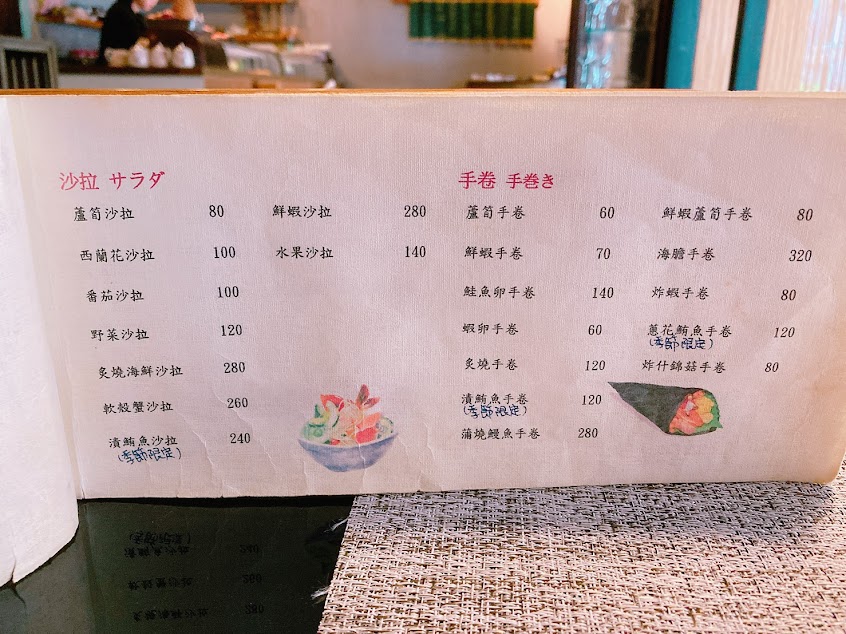 沙拉 サラダ
蘆筍沙拉 80
西蘭花沙拉 100
番茄沙拉 100
野菜沙拉 120
炙燒海鮮沙拉 280
軟殼蟹沙拉 260
漬鮪魚沙拉 240
(季節限定)
鮮蝦沙拉 280
水果沙拉 140
手卷 手巻き
蘆筍手卷 60
鮮蝦手卷 70
鮭魚卵手卷 140
蝦卵手卷 60
炙燒手卷 120
漬鮪魚手卷 120
(季節限定)
蒲燒鰻魚手卷 280
鮮蝦蘆筍手卷 80
海膽手卷 320
炸蝦手卷 80
蔥花鮪魚手卷 120
(季節限定)
炸什錦菇手卷 80